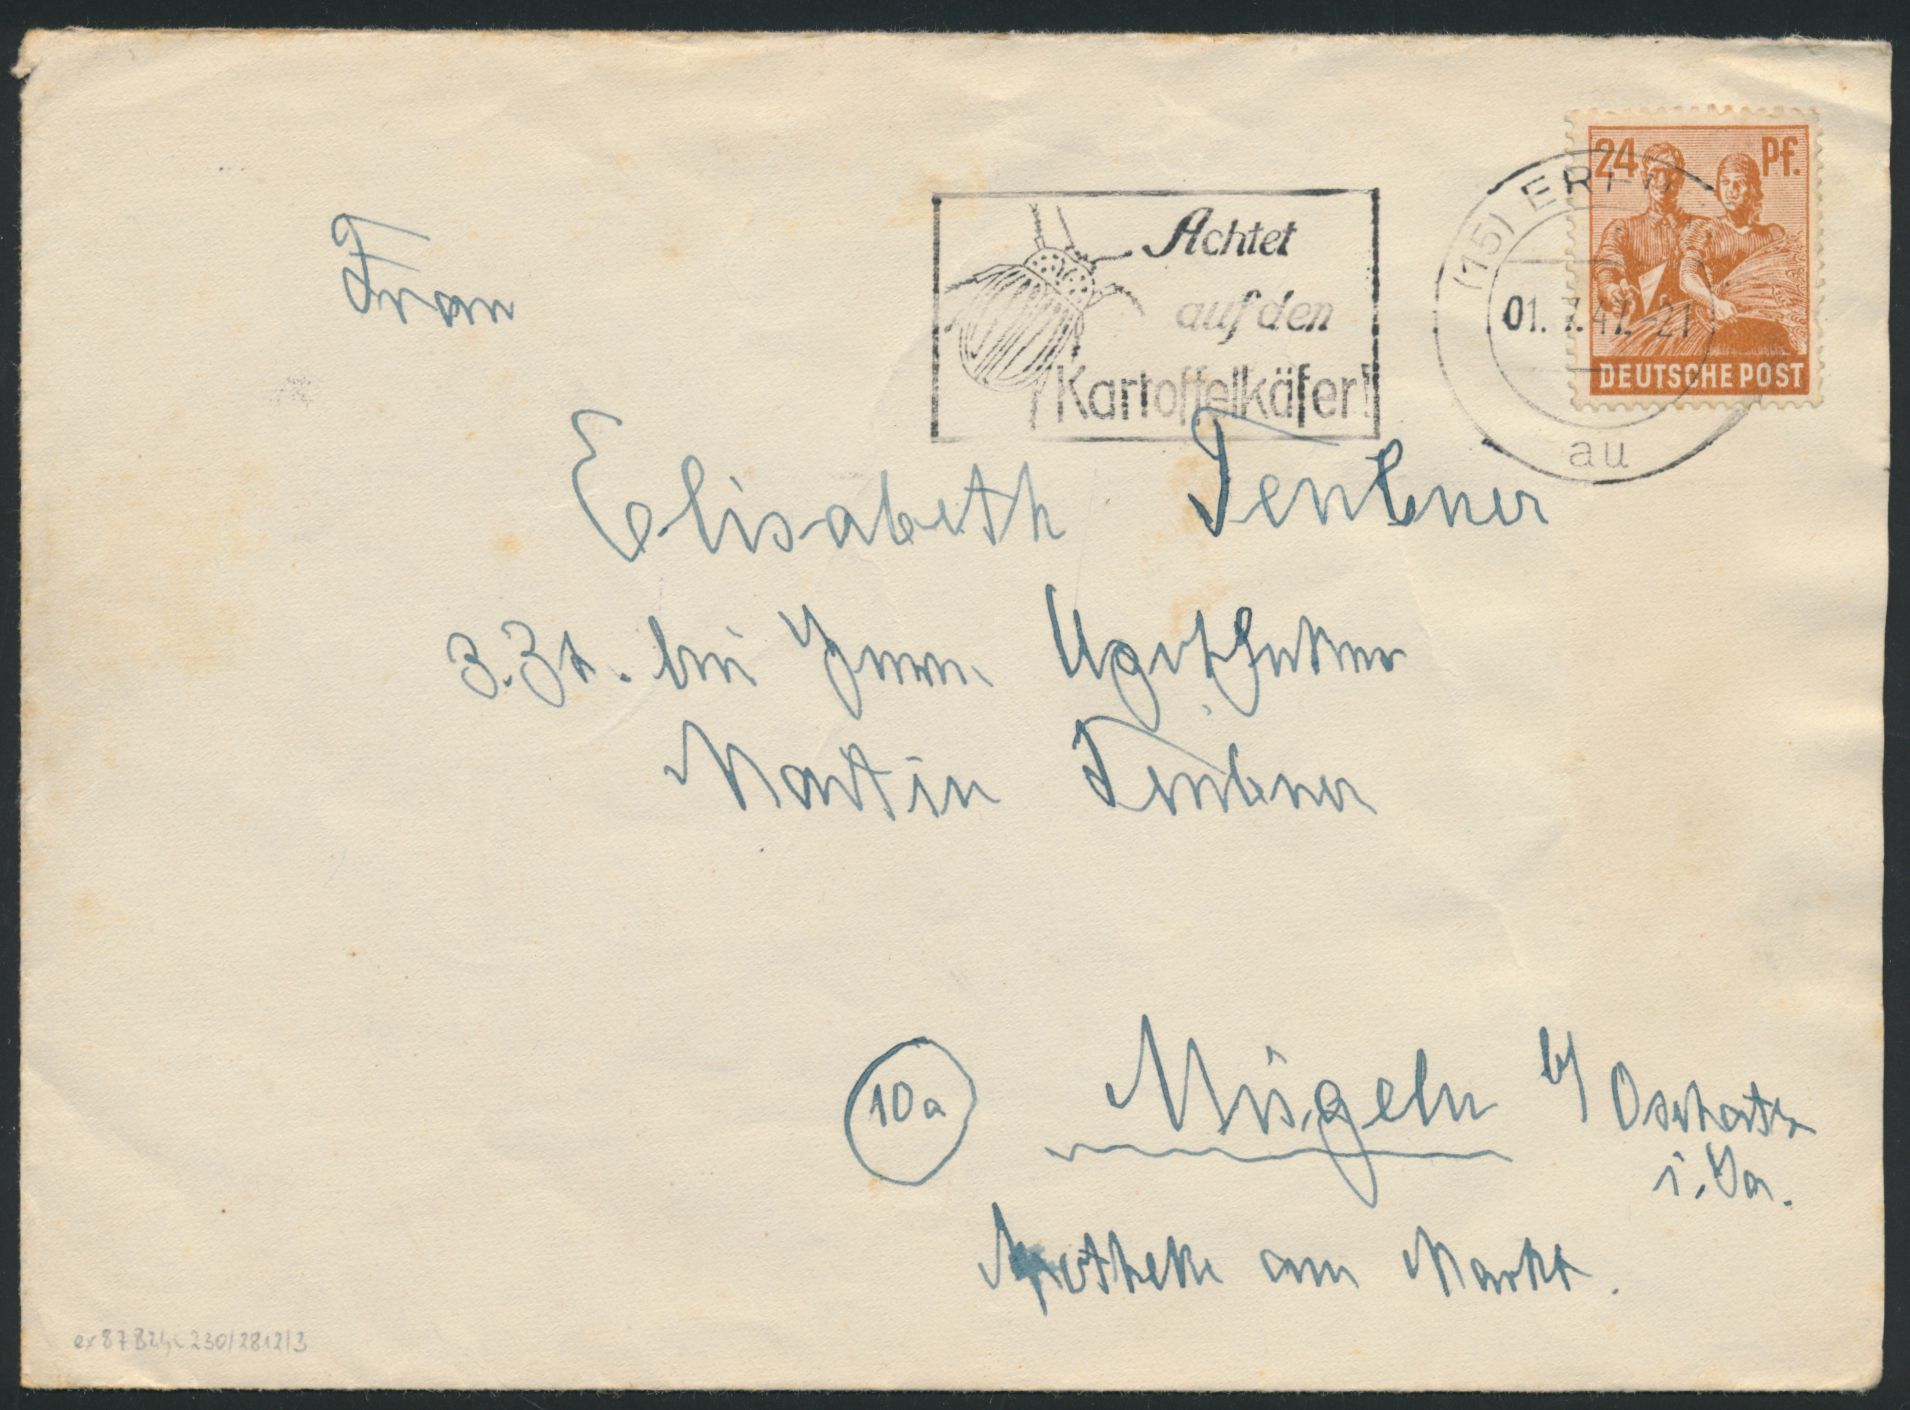 24 Pf.
DEUTSCHE POST
(15)
01. 7. 47. 21
au
Achtet
auf den
Kartoffelkäfer!
Frau
Elisabeth Teubner
z. Zt. bei Herrn Apotheker
Martin Teubner
10a Mügeln b/ Oschatz
i. Sa.
Apotheke am Markt.